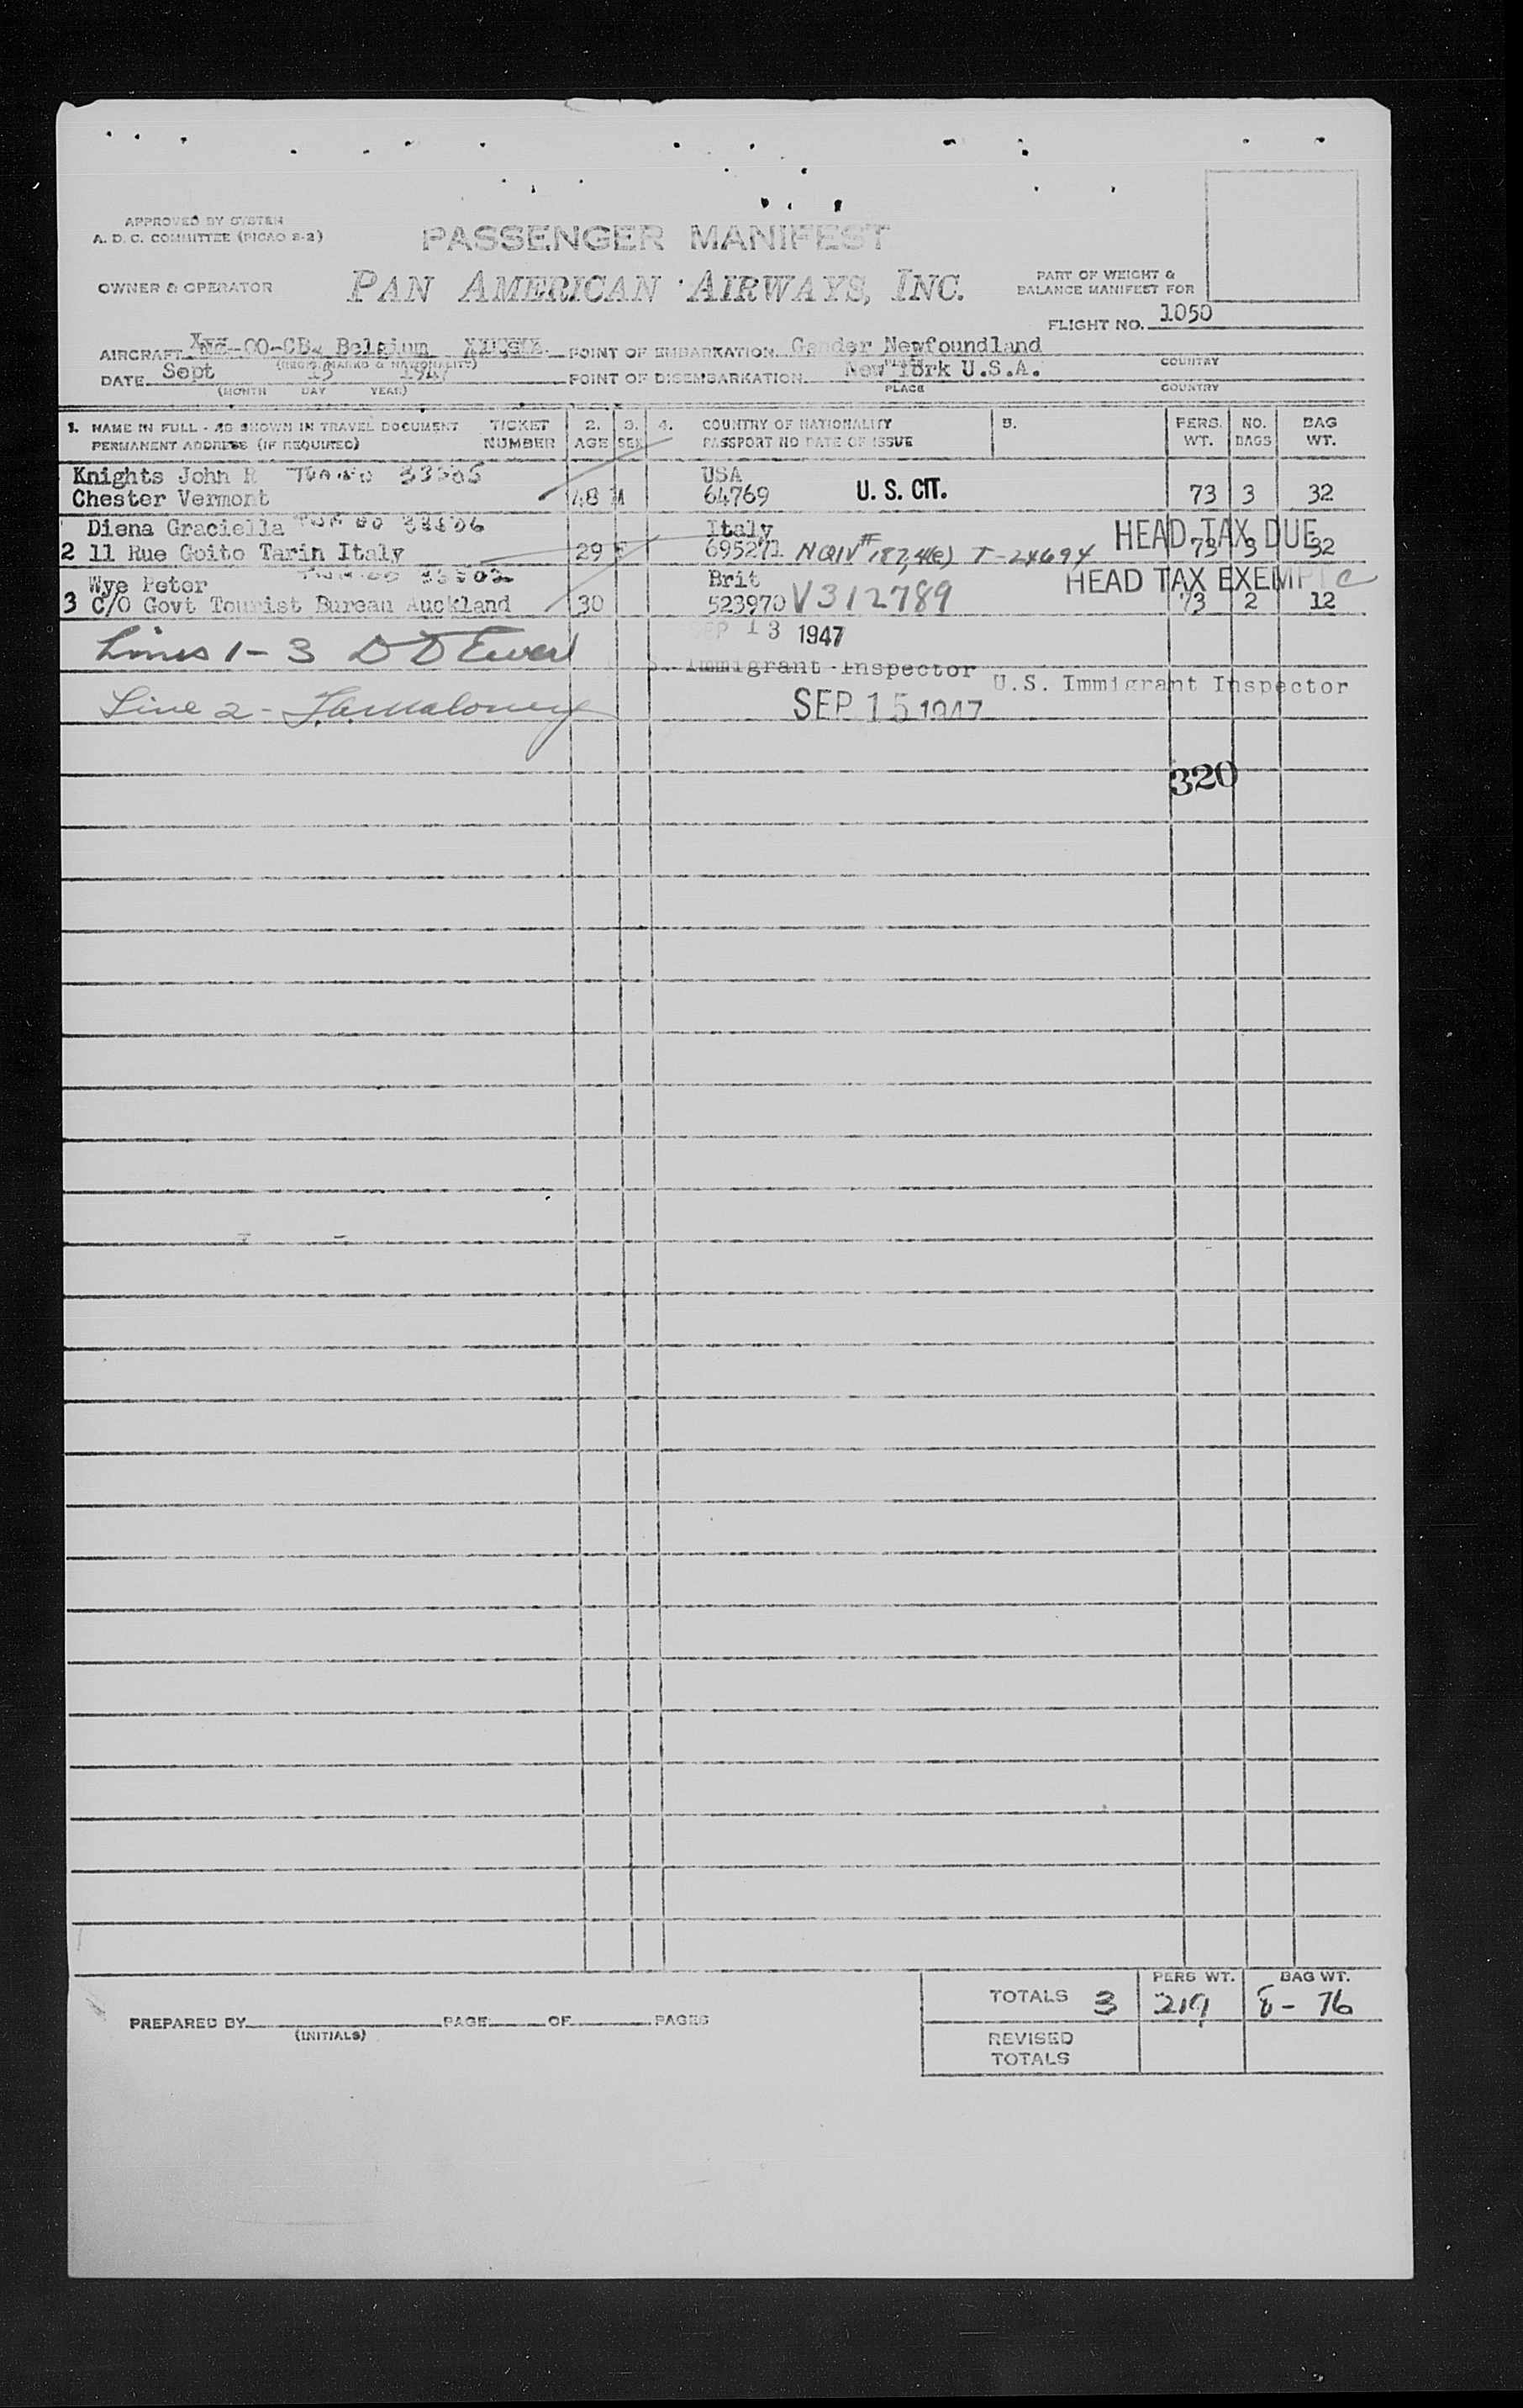 APPROVED BY SYSTEM
A. D. C. COMMITTEE (PICAO 2-2)
PASSENGER MANIFEST
OWNER & OPERATOR
PAN AMERICAN AIRWAYS, INC.
PART OF WEIGHT &
BALANCE MANIFEST FOR
FLIGHT NO. 1050
AIRCRAFT OO-CB Belgium POINT OF EMBARKATION Gander Newfoundland
(REG'N. MARKS & NATIONALITY) PLACE COUNTRY
DATE Sept 13 1947 POINT OF DISEMBARKATION New York U.S.A.
(MONTH DAY YEAR) PLACE COUNTRY
1. NAME IN FULL - AS SHOWN IN TRAVEL DOCUMENT TICKET 2. 3. 4. COUNTRY OF NATIONALITY 5. PERS. NO. BAG
PERMANENT ADDRESS (IF REQUIRED) NUMBER AGE SEX PASSPORT NO DATE OF ISSUE WT. BAGS WT.
Knights John R USA
Chester Vermont 48 M 64769 U. S. CIT. 73 3 32
Diena Graciella Italy HEAD TAX DUE
2 11 Rue Goito Tarin Italy 29 F 695271 NQIV# 187,4(e) T-24694 73 3 32
Wye Peter Brit HEAD TAX EXEMPT C
3 C/O Govt Tourist Bureau Auckland 30 523970 V312789 73 2 12
Lines 1-3 SEP 13 1947
Immigrant Inspector
U.S. Immigrant Inspector
Line 2 - Maloney SEP 15 1947
320
PERS WT. BAG WT.
TOTALS 3 219 8 - 76
PREPARED BY PAGE OF PAGES
(INITIALS)
REVISED
TOTALS